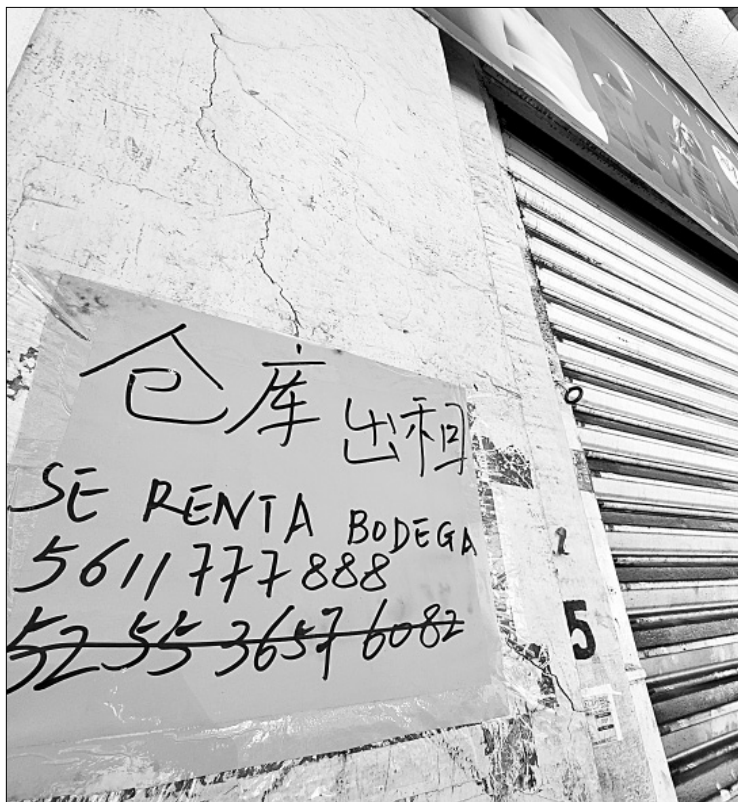 仓库出租
SE RENTA BODEGA
5611777888
52 55 3657 6082
5